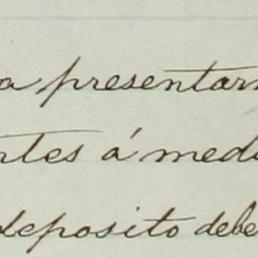 a presentar
ntes á medi
deposito debe